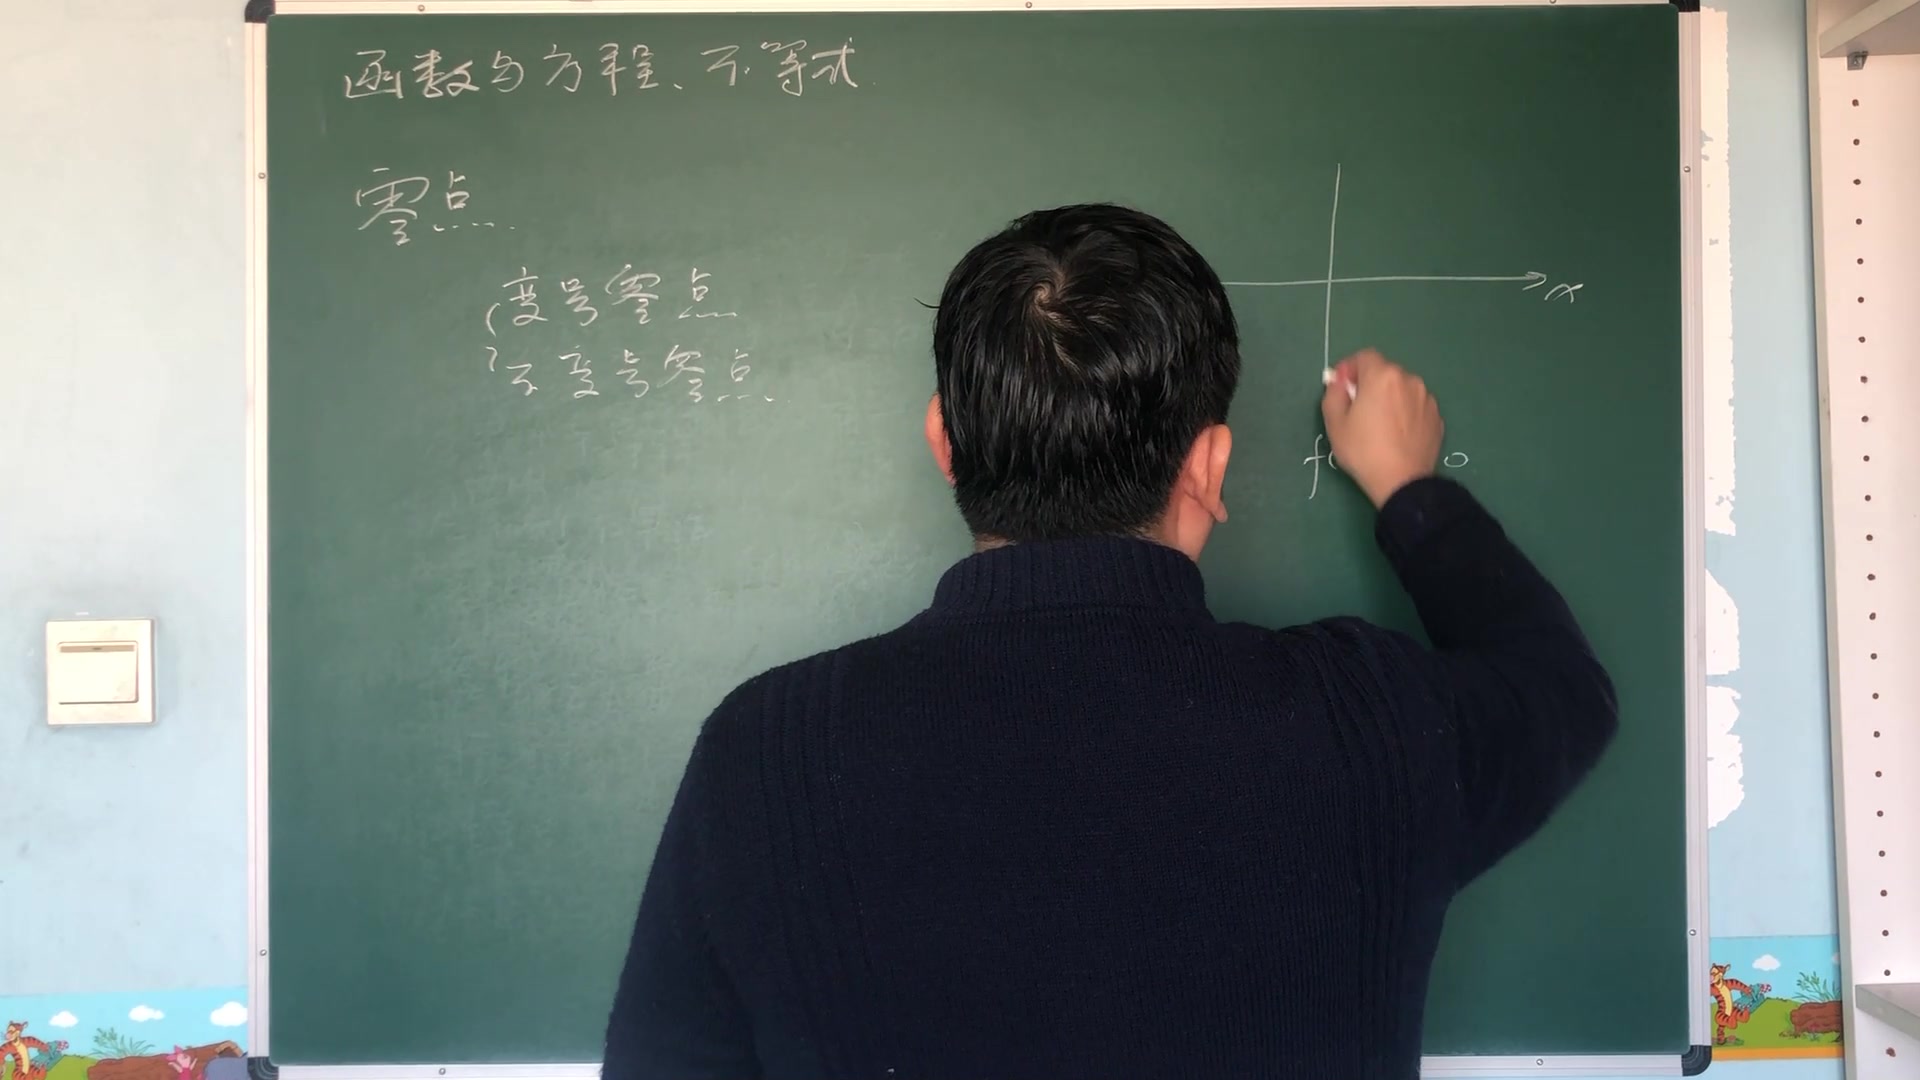 函数与方程、不等式
零点
变号零点
不变号零点
x
f( 0